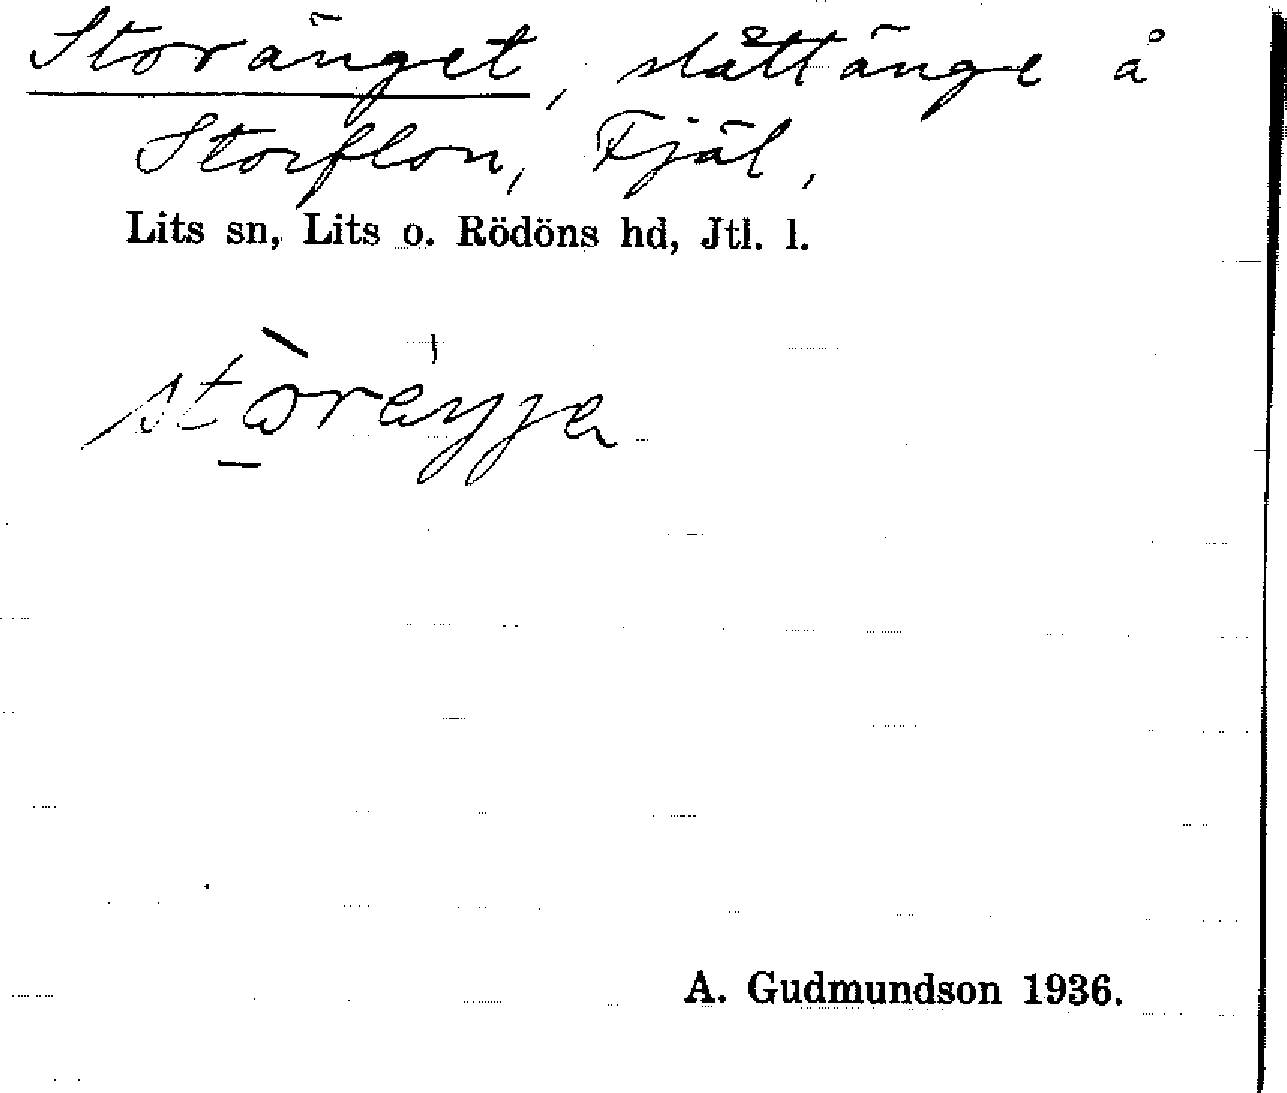 Storänget, slåttänge å
Storflon, Fjäl,
Lits sn, Lits o. Rödöns hd, Jtl. l.
A. Gudmundson 1936.